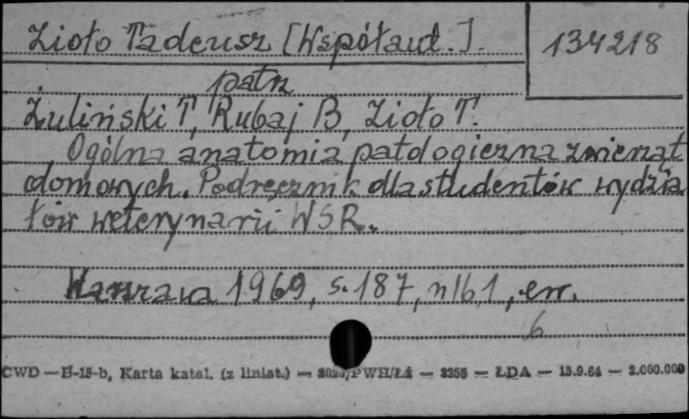 Zioło Tadeusz [Współaut.].
134218
patrz
Żuliński T, Rubaj B, Zioło T.
Ogólna anatomia patologiczna zwierząt
domowych. Podręcznik dla studentów wydzia
łów weterynarii WSR.
Warszawa 1969, s. 187, nlb 1, err.
6
CWD — B-15-b, Karta katal. (z liniat.) — PWH/Łź — 3255 — ŁDA — 15.9.64 — 2.000.000